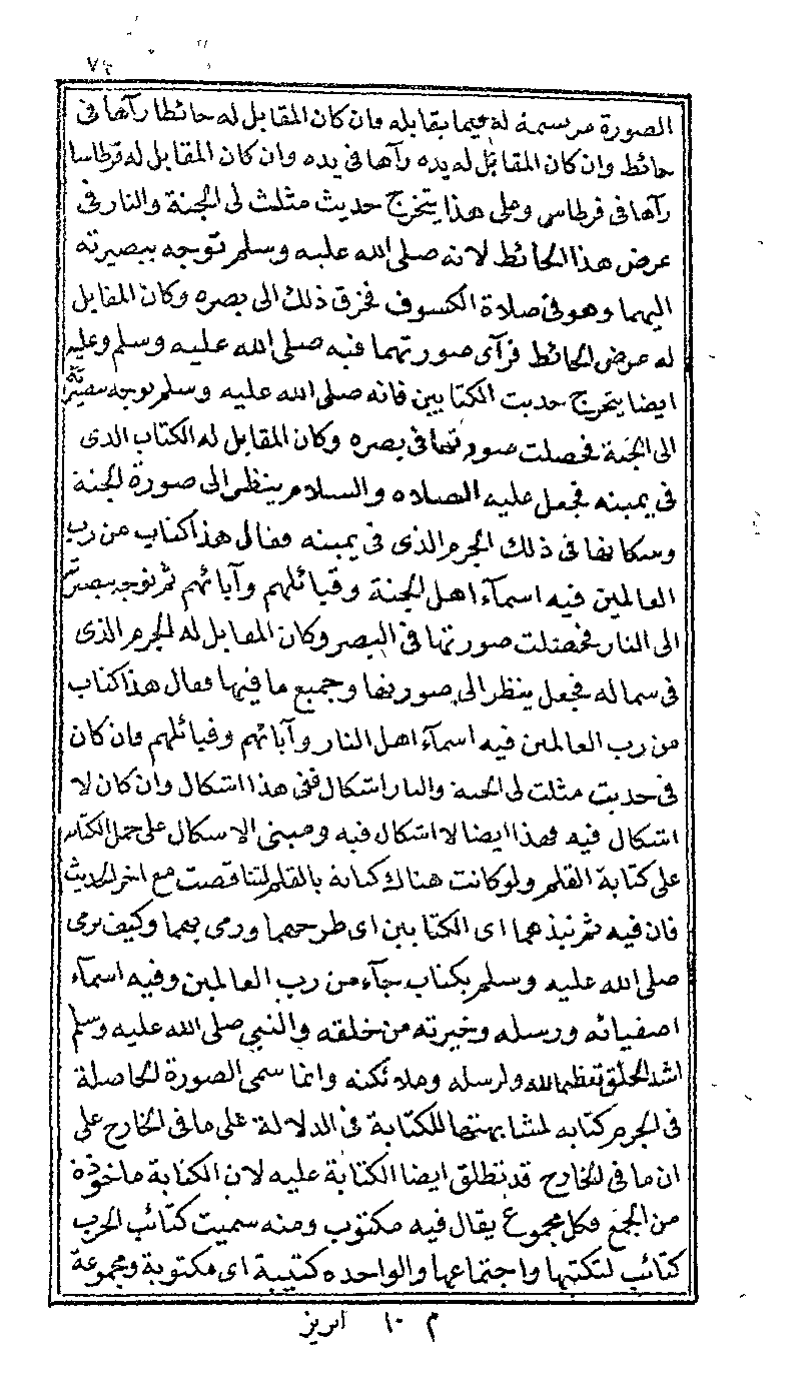 ٧٣
الصورة مرتسمة له فيما يقابله فان كان المقابل له حائطا رآها فى
حائط وان كان المقابل له يده رآها فى يده وان كان المقابل له قرطاسا
رآها فى قرطاس وعلى هذا يتخرج حديث مثلت لى الجنة والنار فى
عرض هذا الحائط لانه صلى الله عليه وسلم توجه ببصيرته
اليهما وهو فى صلاة الكسوف فخرق ذلك الى بصره وكان المقابل
له عرض الحائط فرآى صورتهما فيه صلى الله عليه وسلم وعليه
ايضا يتخرج حديث الكتابين فانه صلى الله عليه وسلم توجه ببصيرته
الى الجنة فحصلت صورتها فى بصره وكان المقابل له الكتاب الذى
فى يمينه فجعل عليه الصلاه والسلام ينظر الى صورة الجنة
وسكانها فى ذلك الجرم الذى فى يمينه فقال هذا كتاب من رب
العالمين فيه اسمآء اهل الجنة وقبائلهم وآبائهم ثم توجه ببصيرته
الى النار فحصلت صورتها فى البصر وكان المقابل له الجرم الذى
فى شماله فجعل ينظر الى صورتها وجميع ما فيها فقال هذا كتاب
من رب العالمين فيه اسمآء اهل النار وآبائهم وقبائلهم فان كان
فى حديث مثلت لى الجنة والنار اشكال ففى هذا اشكال وان كان لا
اشكال فيه فهذا ايضا لا اشكال فيه ومبنى الاشكال على حمل الكتاب
على كتابة القلم ولو كانت هناك كتابة بالقلم لتناقضت مع اخر الحديث
فان فيه ثم نبذهما اى الكتابين اى طرحهما ورمى بهما وكيف يرمى
صلى الله عليه وسلم بكتاب جآء من رب العالمين وفيه اسمآء
اصفيائه ورسله وخيرته من خلقه والنبى صلى الله عليه وسلم
اشد الخلق تعظيما لله ولرسله وملائكته وانما سمى الصورة الحاصلة
فى الجرم كتابه لمشابهتها للكتابة فى الدلالة على ما فى الخارج على
ان ما فى الخارج قد تطلق ايضا الكتابة عليه لان الكتابة ماخوذة
من الجمع فكل مجموع يقال فيه مكتوب ومنه سميت كتائب الحرب
كتائب لتكتبها واجتماعها والواحده كتيبة اى مكتوبة ومجموعة
م ١٠ ابريز